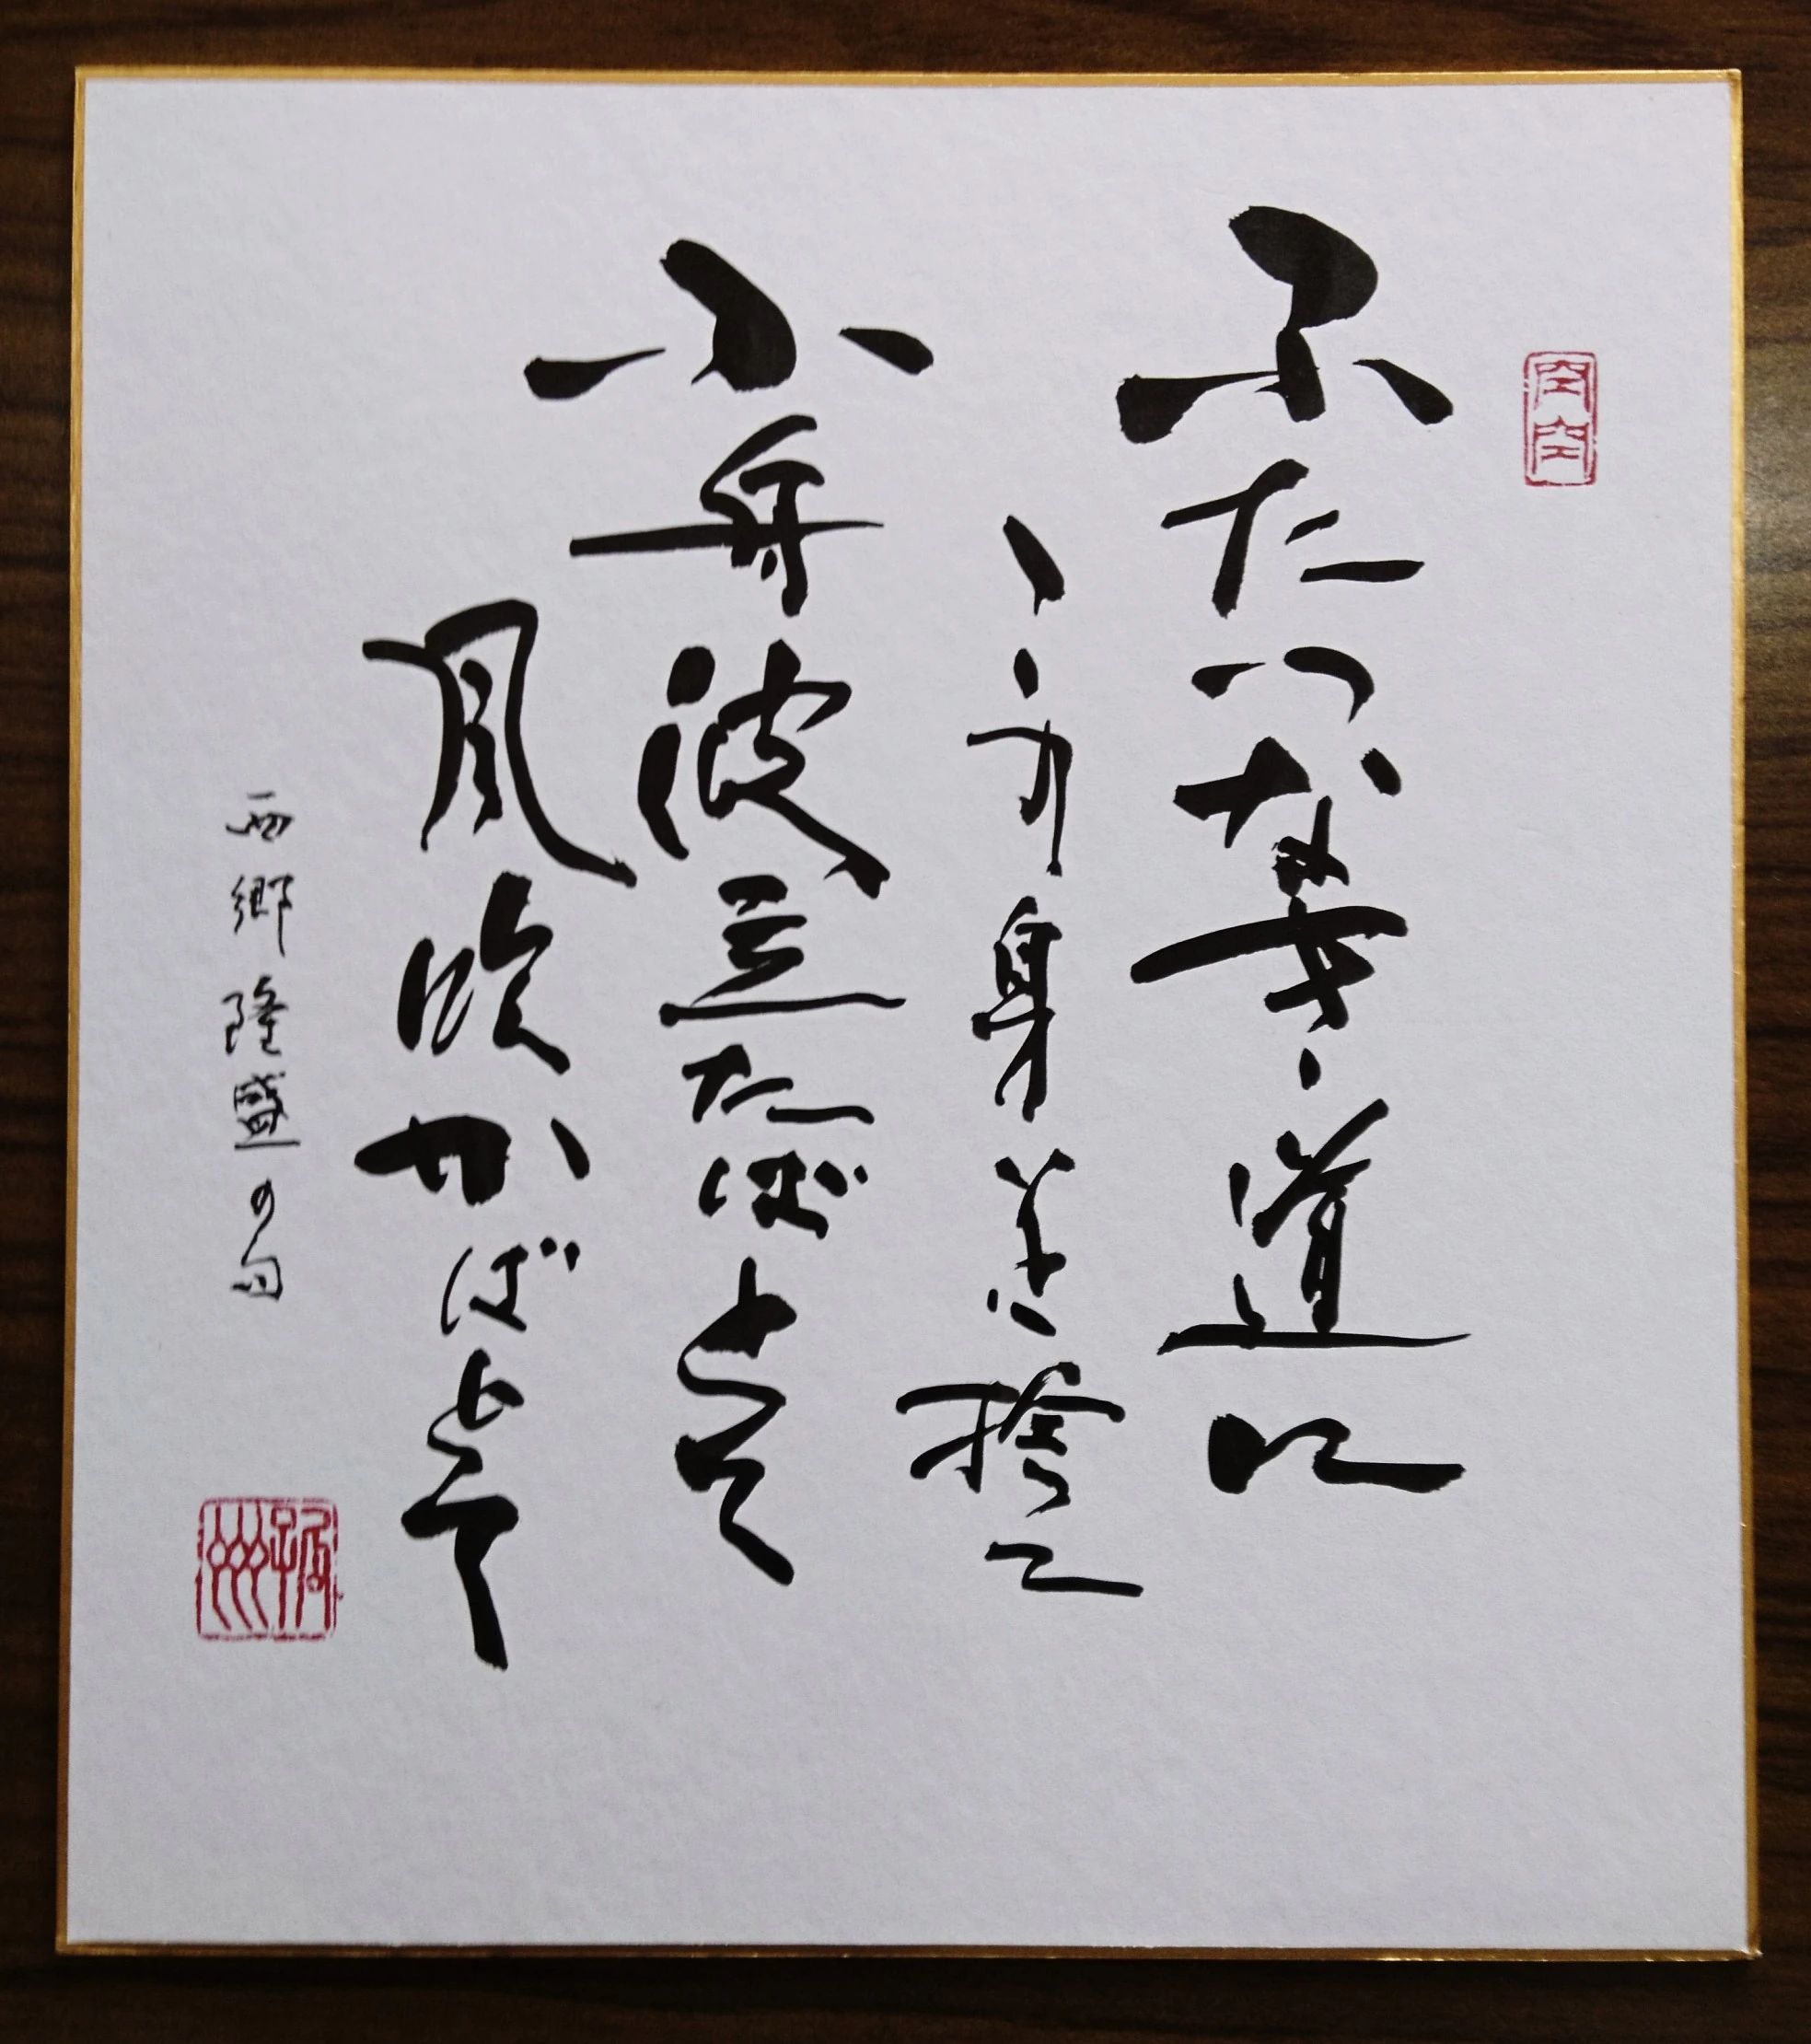 空空
ふたつなき道に
この身を捨て
小舟波立たばとて
風吹かばとて
西郷隆盛の句